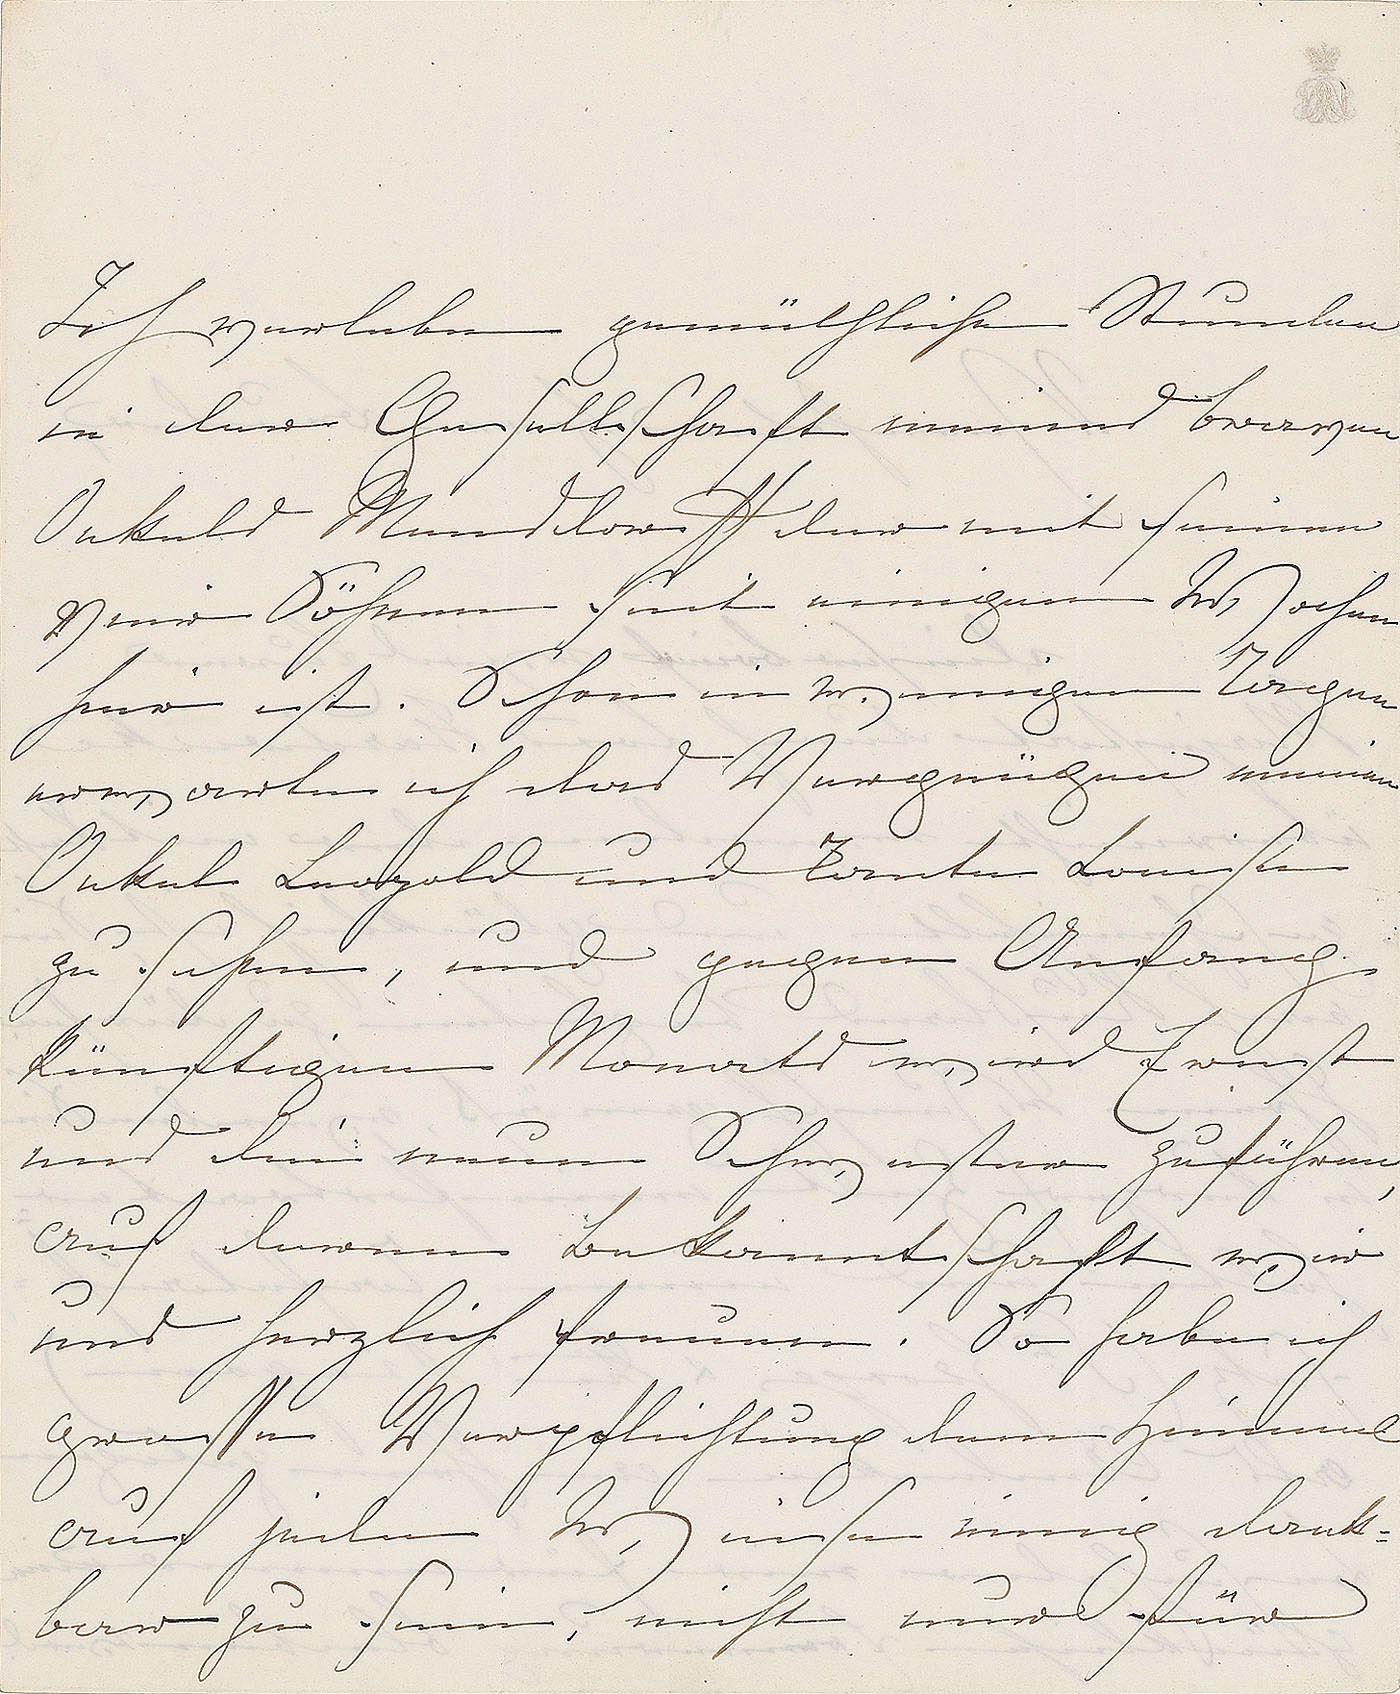 Ich verlebe gemüthliche Stunden
in der Gesellschaft meines braven
Onkels Mensdorff der mit seinen
vier Söhnen seit einigen Wochen
hier ist. Schon in wenigen Tagen
erwarte ich das Vergnügen meinen
Onkel Leopold und Tante Louise
zu sehen, und gegen Anfang
künftigen Monats wird Ernst
uns die neue Schwester zuführen,
auf deren Bekanntschaft wir
uns herzlich freuen. So habe ich
grosse Verpflichtung dem Himmel
auf jede Weise innig dank=
bar zu sein, nicht nur für